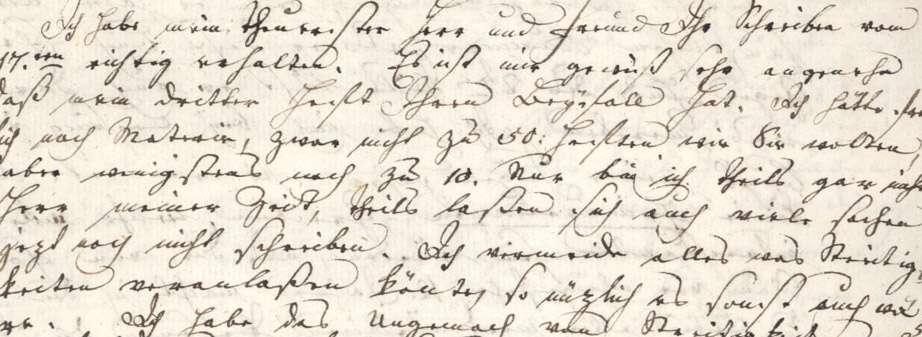 Ich habe mein theurester Herr und Freund Ihr Schreiben vom
17.ten richtig erhalten. Es ist mir gewiß sehr angenehm
daß mein dritter Heft Ihren Beyfall hat. Ich hätte
noch Materie, zwar nicht zu 50. Heften wie Sie wolten,
aber wenigstens noch zu 10. Nur bin ich theils gar nicht
Herr meiner Zeit, theils laßen sich auch viele sachen
jezt noch nicht schreiben. Ich vermeide alles was Streitig
keiten veranlaßen könte, so nüzlich es sonst auch wä
re. Ich habe das Ungemach von